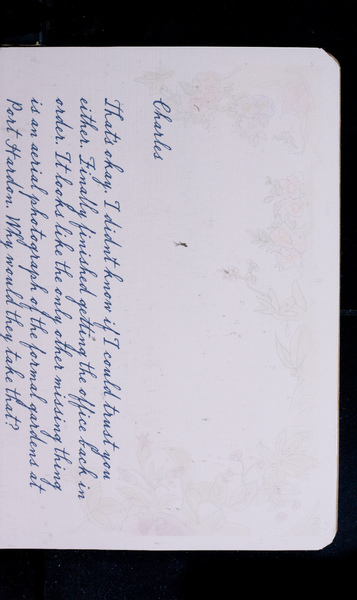 Charles
Thats okay. I didnt know if I could trust you
either. Finally finished getting the office back in
order. It looks like the only other missing thing
is an aerial photograph of the formal gardens at
Port Hardon. Why would they take that?